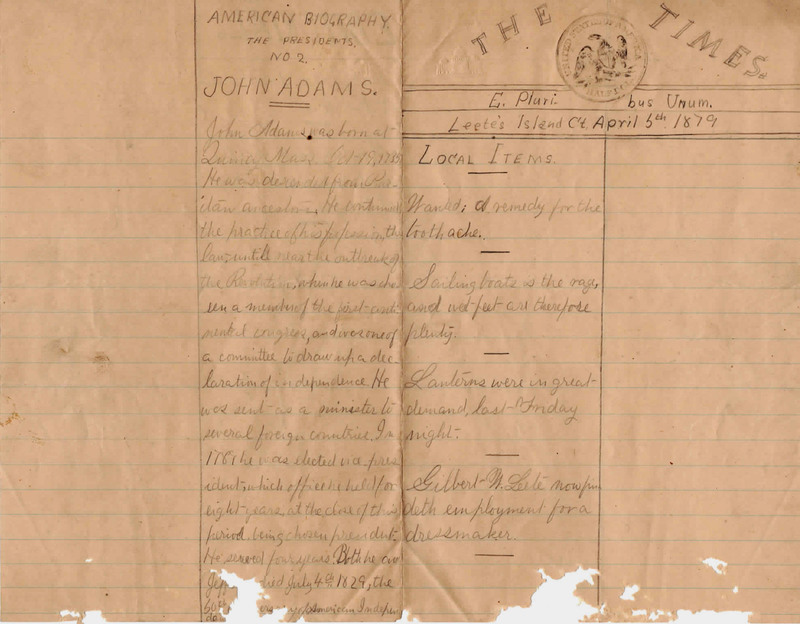 AMERICAN BIOGRAPHY.
THE PRESIDENTS.
NO 2.
JOHN ADAMS.
John Adams was born at
Quincy Mass Oct-19, 1735
He was descended from Pur-
itan ancestors. He continued
the practice of his profession, the
law, until near the outbreak of
the Revolution, when he was cho
sen a member of the first conti
nental congress, and was one of
a committee to draw up a dec
laration of independence. He
was sent as a minister to
several foreign countries. In
he was elected vice-pres
ident, which office he held for
eight years, at the close of this
period, being chosen president.
He served four years. Both he and
Jeff died July 4th 1826, the
50th of American Indepen
de
THE TIMES.
UNITED STATES OF AMERICA
HALF DOL
E. Pluri. bus Unum.
Leete's Island Ct. April 5th. 1879
LOCAL ITEMS.
Wanted; A remedy for the
toothache.
Sailing boats is the rage,
and wet-feet are therefore
plenty.
Lanterns were in great
demand, last Friday
night.
Gilbert W. Leete now fin
deth employment for a
dressmaker.